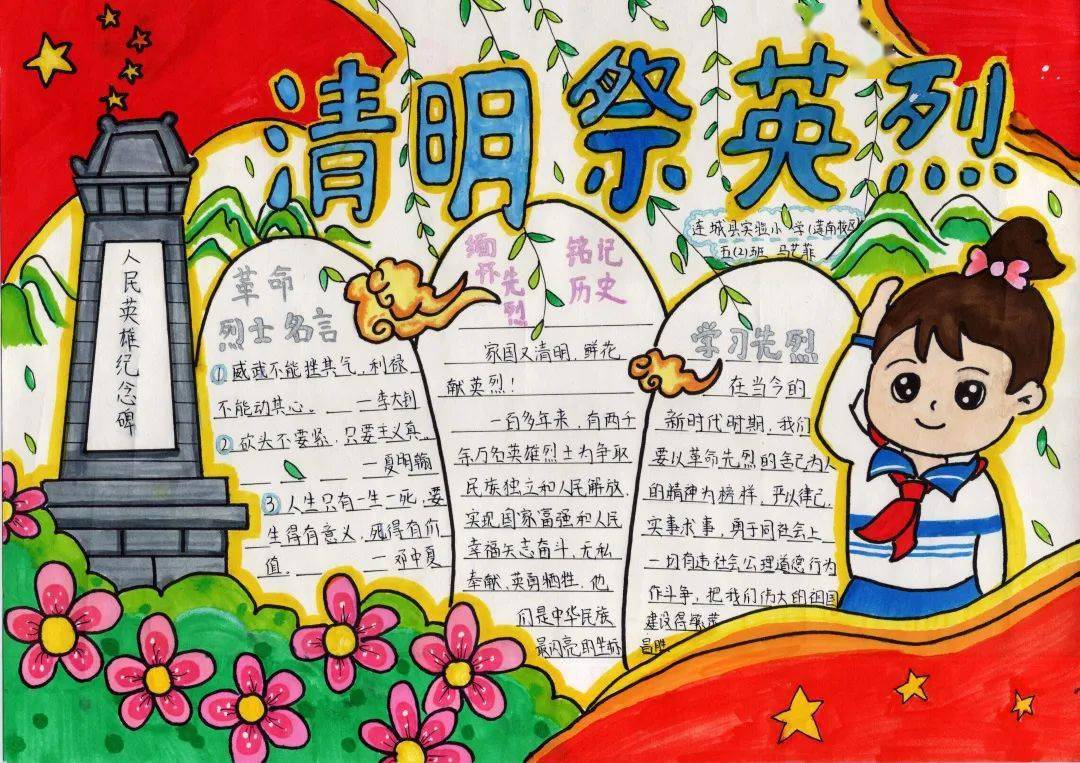 清明祭英烈
连城县实验小学(莲南校区)
五(2)班 马艺菲
人民英雄纪念碑
革命
烈士名言
①威武不能挫其气,利禄
不能动其心。——李大钊
②砍头不要紧,只要主义真。
——夏明翰
③人生只有一生一死,要
生得有意义,死得有价
值。——邓中夏
缅怀先烈
铭记
历史
家国又清明,鲜花
献英烈!
一百多年来,有两千
余万名英雄烈士为争取
民族独立和人民解放,
实现国家富强和人民
幸福矢志奋斗、无私
奉献、英勇牺牲,他
们是中华民族
最闪亮的坐标
学习先烈
在当今的
新时代时期,我们
要以革命先烈的舍己为人
的精神为榜样,严以律己,
实事求事,勇于同社会上
一切有违社会公理道德行为
作斗争,把我们伟大的祖国
建设得繁荣
昌胜